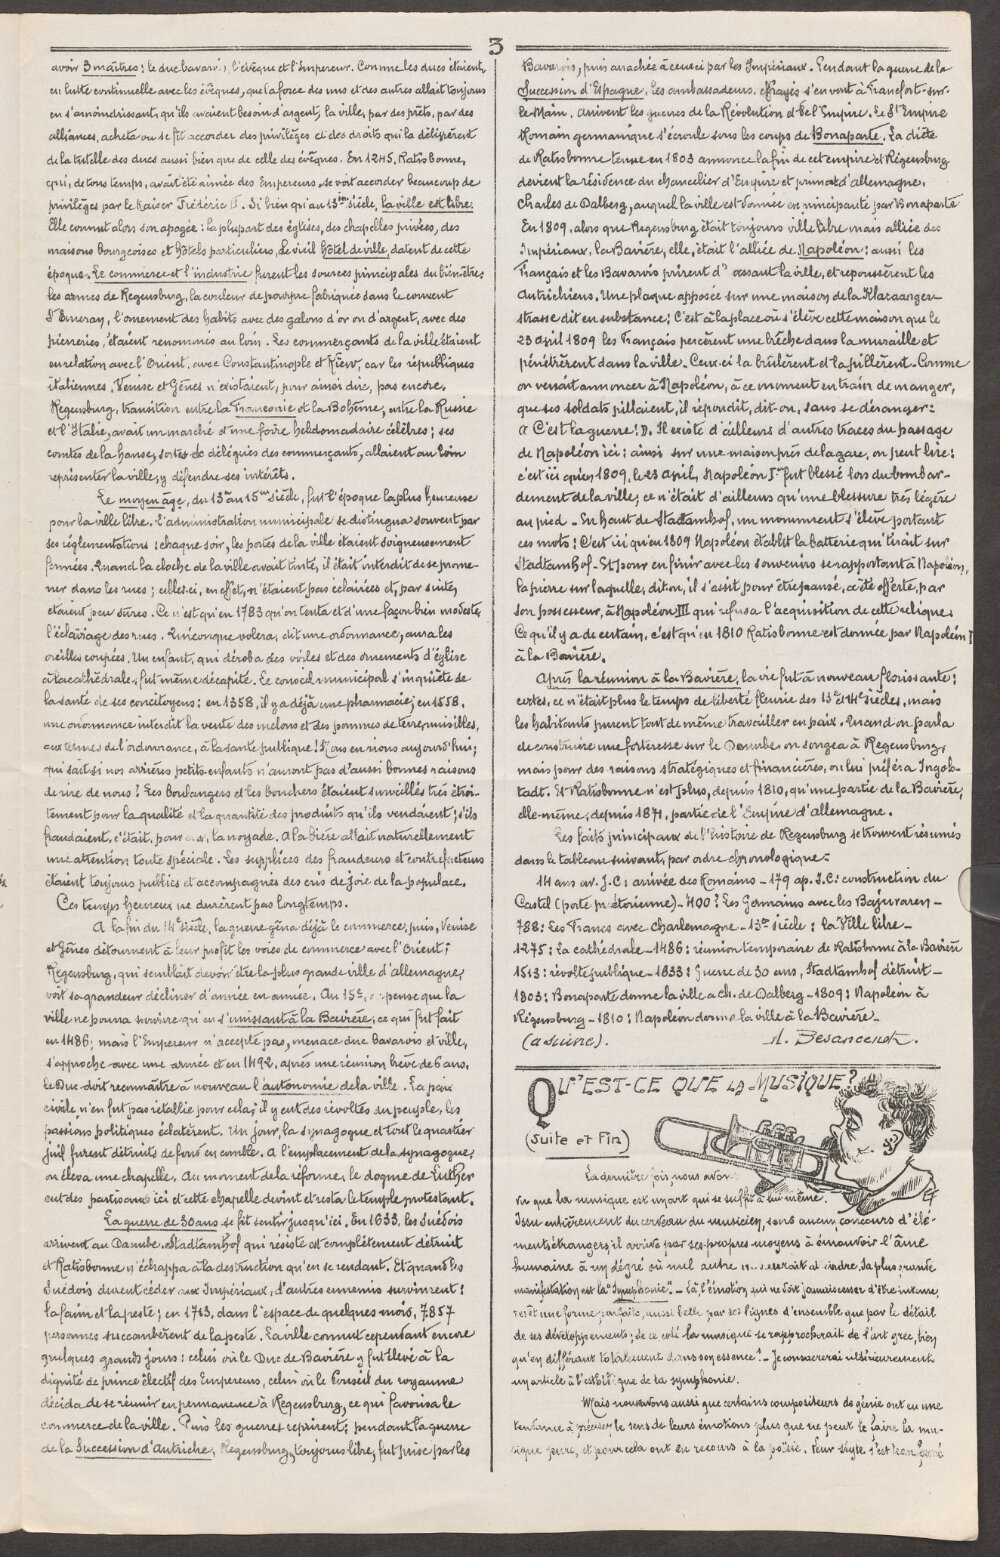 3
avoir 3 maîtres : le duc bavarois, l'évêque et l'Empereur. Comme les ducs étaient,
en lutte continuelle avec les évêques, que la force des uns et des autres allait toujours
en s'amoindrissant, qu'ils avaient besoin d'argent, la ville, par des prêts, par des
alliances, acheta ou se fit accorder des privilèges et des droits qui la délivrèrent
de la tutelle des ducs aussi bien que de celle des évêques. En 1245, Ratisbonne,
qui, de tous temps, avait été aimée des Empereurs, se voit accorder beaucoup de
privilèges par le Kaiser Frédéric II. Si bien qu'au 13ème siècle, la ville est libre.
Elle connut alors son apogée : la plupart des églises, des chapelles privées, des
maisons bourgeoises et hôtels particuliers, le vieil hôtel de ville, datent de cette
époque. Le commerce et l'industrie furent les sources principales du bien-être :
les armes de Regensburg, la couleur de pourpre fabriquée dans le couvent
St Emeran, l'ornement des habits avec des galons d'or ou d'argent, avec des
pierreries, étaient renommés au loin. Les commerçants de la ville étaient
en relation avec l'Orient, avec Constantinople et Kiew, car les républiques
italiennes, Venise et Gênes n'existaient, pour ainsi dire, pas encore.
Regensburg, transition entre la Franconie et la Bohême, entre la Russie
et l'Italie, avait un marché et une foire hebdomadaire célèbres ; ses
comtes de la hanse, sortes de délégués des commerçants, allaient au loin
représenter la ville, y défendre ses intérêts.
Le moyen âge, du 13e au 15ème siècle, fut l'époque la plus heureuse
pour la ville libre. L'administration municipale se distingua souvent par
ses réglementations : chaque soir, les portes de la ville étaient soigneusement
fermées. Quand la cloche de la ville avait tinté, il était interdit de se prome-
ner dans les rues ; celles-ci, en effet, n'étaient pas éclairées et, par suite,
étaient peu sûres. Ce n'est qu'en 1783 qu'on tenta et d'une façon bien modeste,
l'éclairage des rues. Quiconque volera, dit une ordonnance, aura les
oreilles coupées. Un enfant, qui déroba des voiles et des ornements d'église
à la cathédrale, fut même décapité. Le conseil municipal s'inquiète de
la santé de ses concitoyens : en 1358, il y a déjà une pharmacie ; en 1558,
une ordonnance interdit la vente des melons et des pommes de terre, nuisibles,
aux termes de l'ordonnance, à la santé publique ! Nous en rions aujourd'hui ;
qui sait si nos arrières petits-enfants n'auront pas d'aussi bonnes raisons
de rire de nous ! Les boulangers et les bouchers étaient surveillés très étroi-
tement pour la qualité et la quantité des produits qu'ils vendaient ; s'ils
fraudaient, c'était, pour eux, la noyade. A la bière allait naturellement
une attention toute spéciale. Les supplices des fraudeurs et contrefacteurs
étaient toujours publics et accompagnés des cris de joie de la populace.
Ces temps heureux ne durèrent pas longtemps.
A la fin du 14e siècle, la guerre gêna déjà le commerce, puis, Venise
et Gênes détournent à leur profit les voies de commerce avec l'Orient ;
Regensburg, qui semblait devoir être la plus grande ville d'allemagne,
voit sa grandeur décliner d'année en année. Au 15e, on pense que la
ville ne pourra survivre qu'en s'unissant à la Bavière, ce qui fut fait
en 1486 ; mais l'Empereur n'accepte pas, menace duc bavarois et ville,
s'approche avec une armée et en 1492, après une réunion brève de 6 ans,
le Duc doit reconnaître à nouveau l'autonomie de la ville. La paix
civile n'en fut pas rétablie pour cela ; il y eut des révoltes du peuple, les
passions politiques éclatèrent. Un jour, la synagogue et tout le quartier
juif furent détruits de fond en comble. A l'emplacement de la synagogue,
on éleva une chapelle. Au moment de la réforme, le dogme de Luther
eut des partisans ici et cette chapelle devint et resta le temple protestant.
La guerre de 30 ans se fit sentir jusqu'ici. En 1633, les Suédois
arrivent au Danube. Stadtamhof qui résiste est complètement détruit
et Ratisbonne n'échappa à la destruction qu'en se rendant. Et quand les
Suédois durent céder aux Impériaux, d'autres ennemis survinrent :
la faim et la peste ; en 1713, dans l'espace de quelques mois, 7.857
personnes succombèrent de la peste. La ville connut cependant encore
quelques grands jours : celui où le Duc de Bavière y fut élevé à la
dignité de prince électif des Empereurs, celui où le Conseil du royaume
décida de se réunir en permanence à Regensburg, ce qui favorisa le
commerce de la ville. Puis les guerres reprirent ; pendant la guerre
de la Succession d'Autriche, Regensburg, toujours libre, fut prise par les
Bavarois, puis arrachée à ceux-ci par les Impériaux. Pendant la guerre de la
Succession d'Espagne, les ambassadeurs, effrayés s'en vont à Francfort-sur-
le-Main. Arrivent les guerres de la Révolution et de l'Empire. Le St Empire
Romain germanique s'écroule sous les coups de Bonaparte. La diète
de Ratisbonne tenue en 1803 annonce la fin de cet empire et Regensburg
devient la résidence du chancelier d'Empire et primat d'allemagne.
Charles de Dalberg, auquel la ville est donnée en principauté par Bonaparte
En 1809, alors que Regensburg était toujours ville libre mais alliée des
Impériaux, la Bavière, elle, était l'alliée de Napoléon : aussi les
Français et les Bavarois prirent d'assaut la ville, et repoussèrent les
Autrichiens. Une plaque apposée sur une maison de la Klarangen-
strasse dit en substance : C'est à la place où s'élève cette maison que le
23 avril 1809 les Français percèrent une brèche dans la muraille et
pénétrèrent dans la ville. Ceux-ci la brûlèrent et la pillèrent. Comme
on venait annoncer à Napoléon, à ce moment en train de manger,
que ses soldats pillaient, il répondit, dit-on, sans se déranger :
« C'est la guerre ! ». Il existe d'ailleurs d'autres traces du passage
de Napoléon ici : ainsi sur une maison près de la gare, on peut lire :
c'est ici qu'en 1809, le 23 avril, Napoléon Ier fut blessé lors du bombar-
dement de la ville ; ce n'était d'ailleurs qu'une blessure très légère
au pied. En haut de Stadtamhof, un monument s'élève portant
ces mots : C'est ici qu'en 1809 Napoléon établit la batterie qui tirait sur
Stadtamhof. Et pour en finir avec les souvenirs se rapportant à Napoléon,
la pierre sur laquelle, dit-on, il s'assit pour être pansé, a été offerte, par
son possesseur, à Napoléon III qui refusa l'acquisition de cette relique.
Ce qu'il y a de certain, c'est qu'en 1810 Ratisbonne est donnée par Napoléon I
à la Bavière.
Après la réunion à la Bavière, la vie fut à nouveau florissante ;
certes, ce n'était plus le temps de liberté fleurie des 13e et 14e siècles, mais
les habitants purent tout de même travailler en paix. Quand on parla
de construire une forteresse sur le Danube, on songea à Regensburg,
mais pour des raisons stratégiques et financières, on lui préféra Ingols-
tadt. Et Ratisbonne n'est plus, depuis 1810, qu'une partie de la Bavière,
elle-même, depuis 1871, partie de l'Empire d'allemagne.
Les faits principaux de l'histoire de Regensburg se trouvent résumés
dans le tableau suivant, par ordre chronologique :
14 ans av. J.C : arrivée des Romains — 179 ap. J.C : construction du
Castel (porte prétorienne) — 400 : Les Germains avec les Bajuvaren —
788 : Les Francs avec Charlemagne — 13e siècle : la Ville libre —
1275 : la cathédrale — 1486 : réunion temporaire de Ratisbonne à la Bavière
1513 : révolte publique — 1633 : Guerre de 30 ans, Stadtamhof détruit —
1803 : Bonaparte donne la ville à Ch. de Dalberg — 1809 : Napoléon à
Regensburg — 1810 : Napoléon donne la ville à la Bavière —
(à suivre). A. Besancenot.
QU'EST-CE QUE LA MUSIQUE ?
(Suite et Fin)
La dernière fois, nous avons
vu que la musique est un art qui se suffit à lui-même.
Issu entièrement du cerveau du musicien, sans aucun concours d'élé-
ments étrangers, il arrive par ses propres moyens à émouvoir l'âme
humaine à un degré où nul autre ne saurait atteindre. Sa plus grande
manifestation est la "Symphonie". Là, l'émotion, qui ne doit jamais cesser d'être intense,
revêt une forme parfaite, aussi belle par ses lignes d'ensemble que par le détail
de ses développements ; de ce côté la musique se rapprocherait de l'art grec, bien
qu'en différant totalement dans son essence ! Je consacrerai ultérieurement
un article à l'esthétique de la symphonie.
Mais nous savons aussi que certains compositeurs de génie ont eu une
tendance à préciser le sens de leurs émotions plus que ne peut le faire la mu-
sique pure, et pour cela ont eu recours à la poësie. Leur style s'est transformé